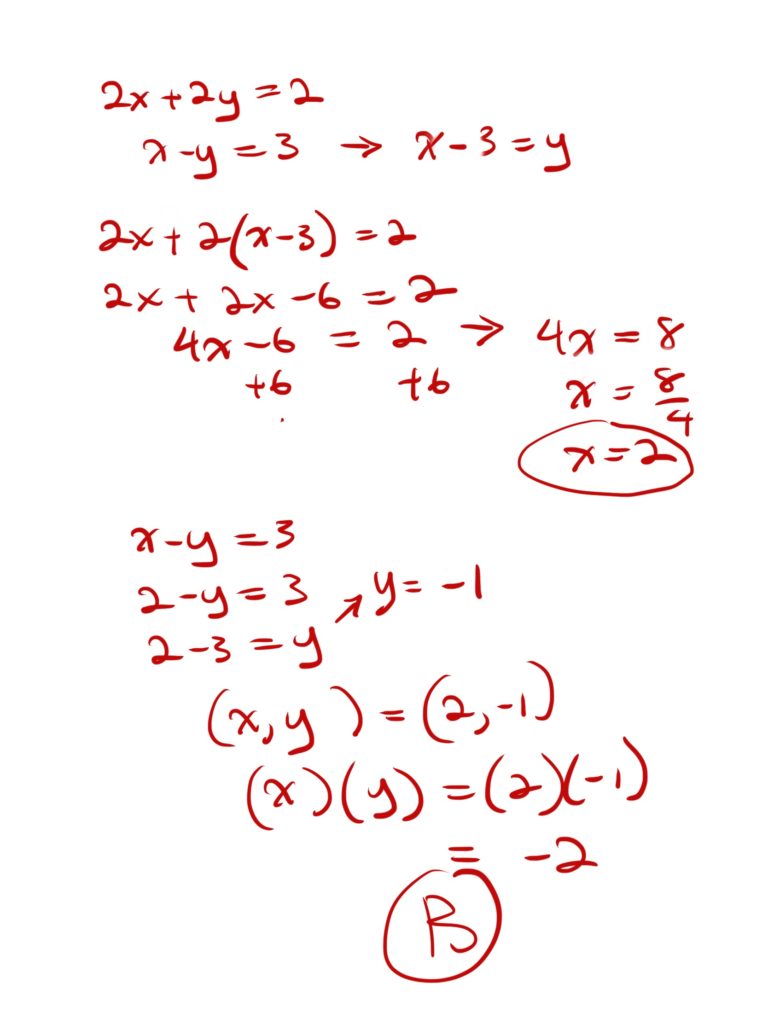 2x + 2y = 2
x - y = 3 → x - 3 = y
2x + 2(x - 3) = 2
2x + 2x - 6 = 2
4x - 6 = 2 → 4x = 8
+6 +6 x = 8/4
x = 2
x - y = 3
2 - y = 3
2 - 3 = y ↗ y = -1
(x, y) = (2, -1)
(x)(y) = (2)(-1)
= -2
B